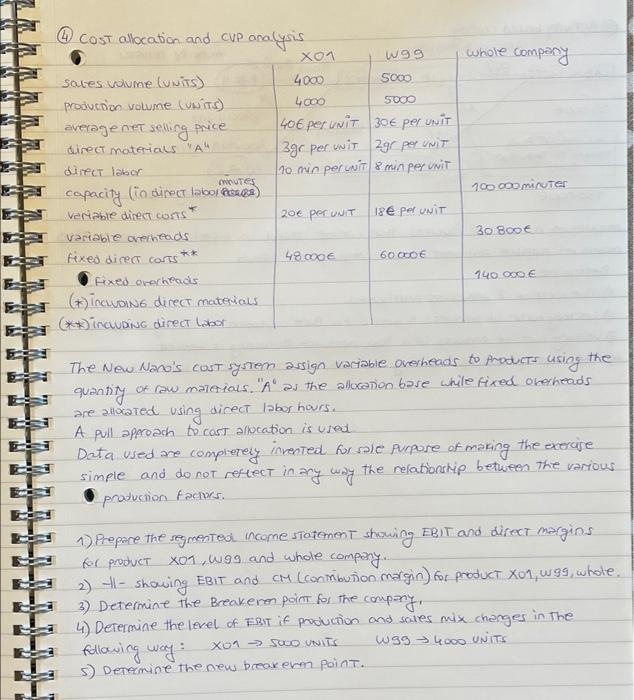 ④ COST allocation and CVP analysis
XO1 W99 whole company
sales volume (UNITS) 4000 5000
production volume (UNITS) 4000 5000
average net selling price 40€ per UNIT 30€ per UNIT
direct materials "A" 3gr per UNIT 2gr per UNIT
direct labor 10 min per UNIT 8 min per UNIT
minutes
capacity (in direct labor) 100 000 minutes
veriable direct costs* 20€ per UNIT 18€ per UNIT
variable overheads 30 800€
fixed direct costs** 48 000€ 60 000€
Fixed overheads 140 000€
(*) including direct materials
(**) including direct labor
The New Nano's cost system assign variable overheads to products using the
quantity of raw materials "A" as the allocation base while fixed overheads
are allocated using direct labor hours.
A pull approach to cost allocation is used.
Data used are completely invented for sole purpose of making the exercise
simple and do not reflect in any way the relationship between the various
production factors.
1) Prepare the segmented income statement showing EBIT and direct margins
for product XO1, W99 and whole company.
2) -11- showing EBIT and CM (contribution margin) for product XO1, W99, whole.
3) Determine the Breakeven point for the company.
4) Determine the level of EBIT if production and sales mix changes in the
following way: XO1 → 5000 UNITS W99 → 4000 UNITS
5) Determine the new breakeven point.